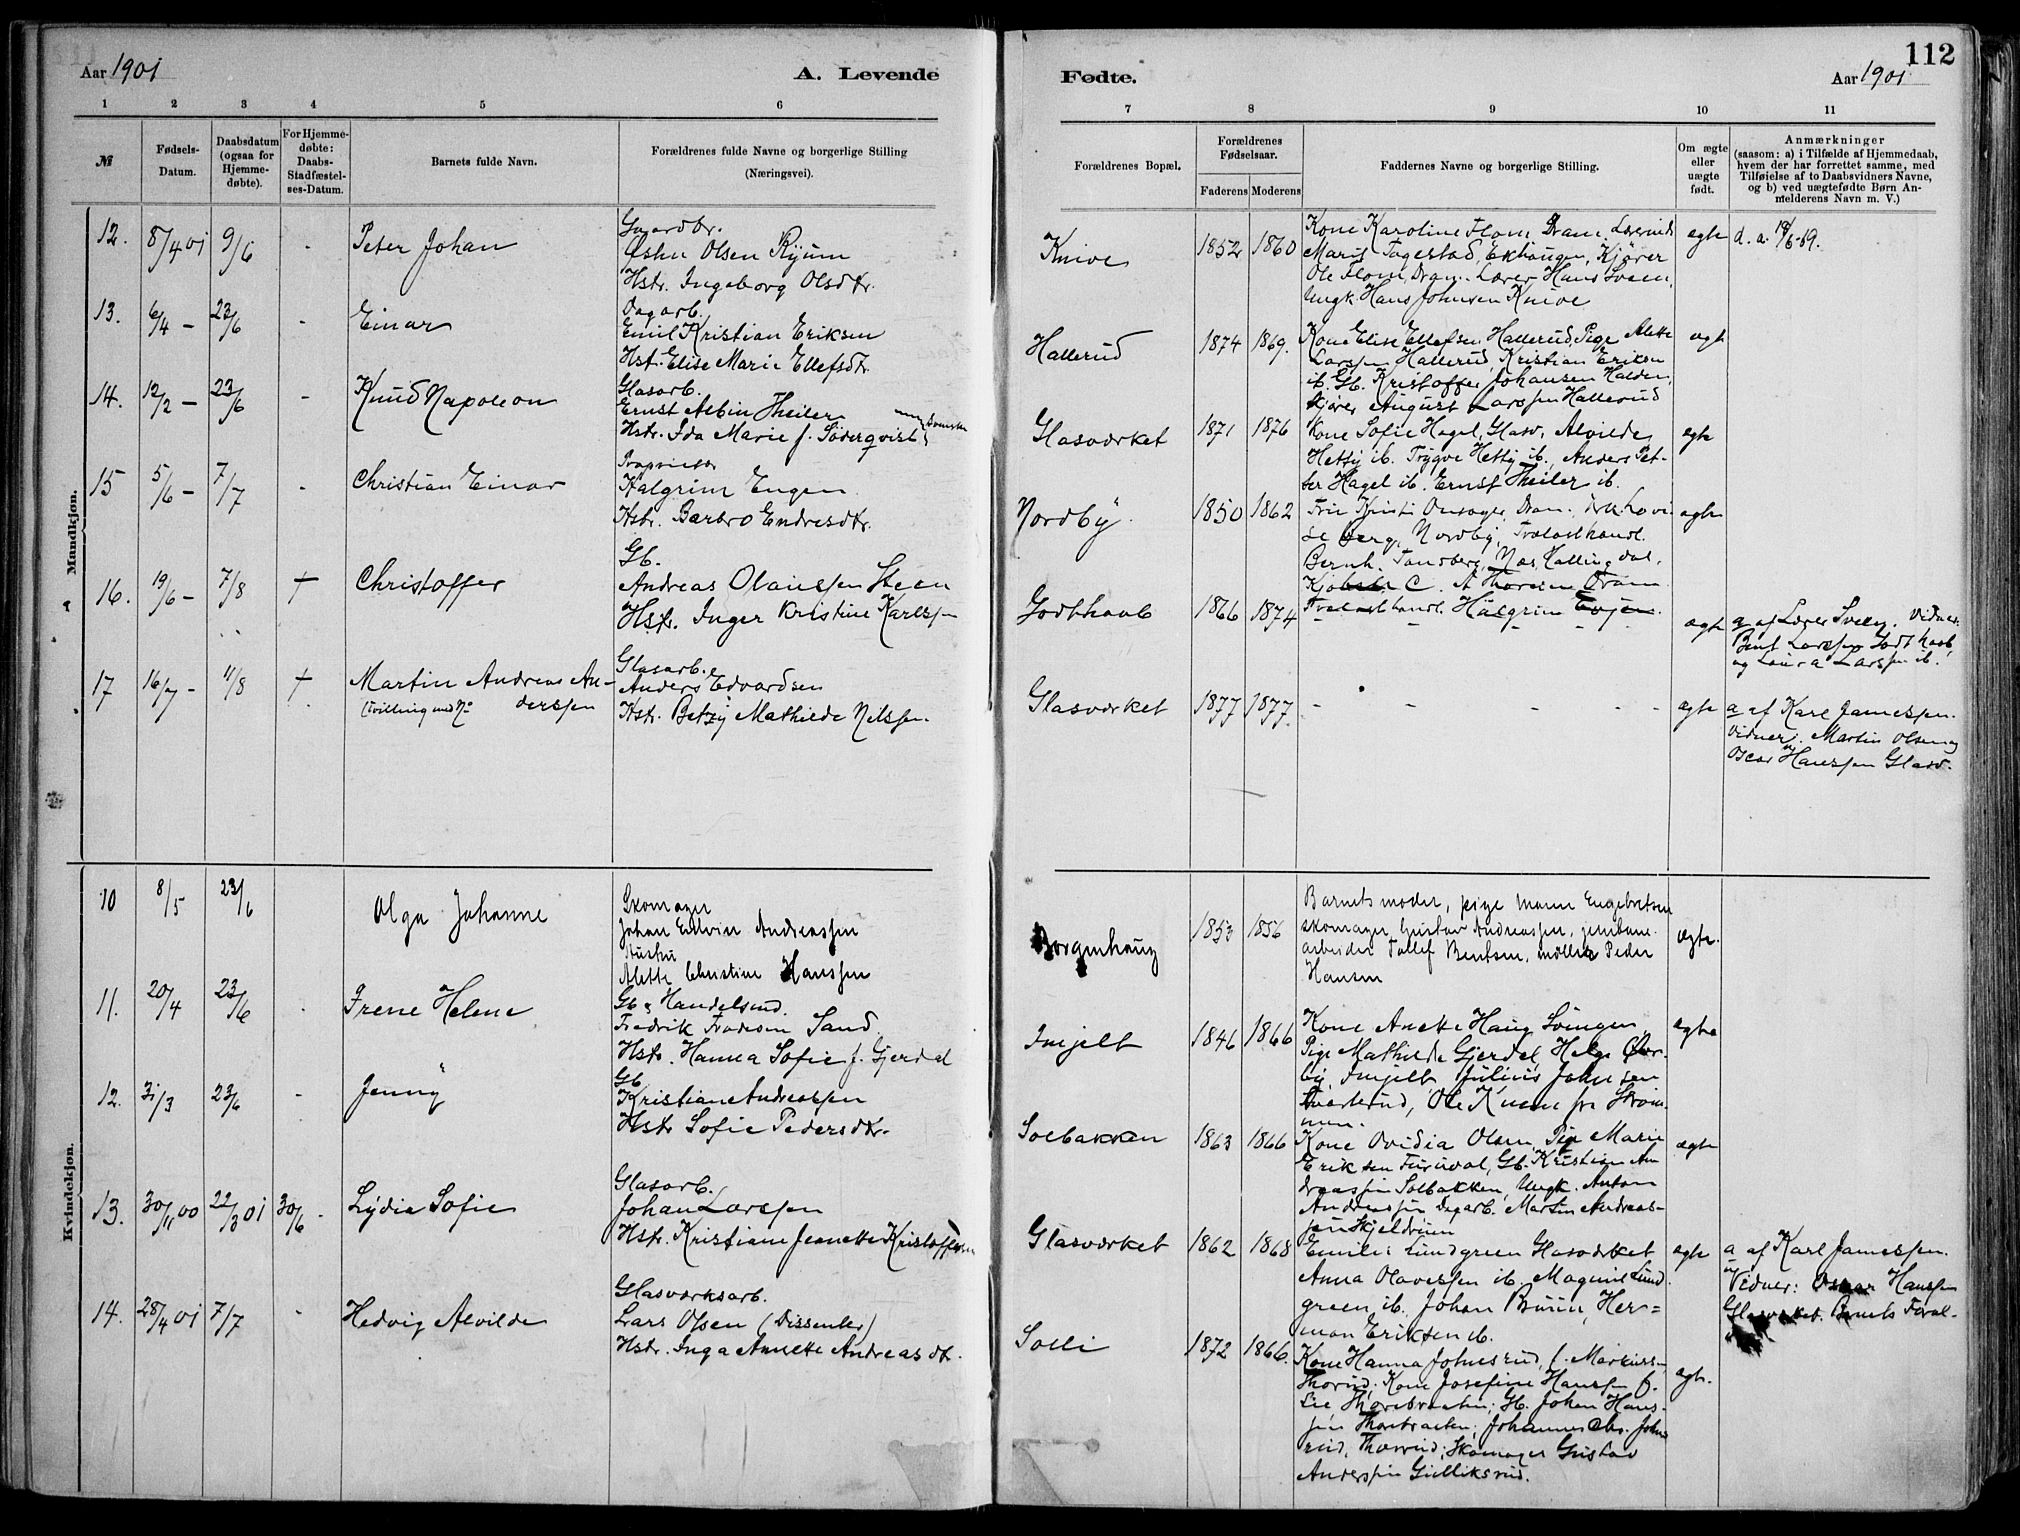 112
Aar 1901
A. Levende
Fødte.
Aar 1901
1 2 3 4 5 6
7 8 9 10 11
№
Fødsels-
Datum.
Daabsdatum
(ogsaa for
Hjemme-
døbte).
For Hjemme-
døbte:
Daabs-
Stadfæstel-
ses-Datum.
Barnets fulde Navn.
Forældrenes fulde Navne og borgerlige Stilling
(Næringsvei).
Forældrenes Bopæl.
Forældrenes
Fødselsaar.
Faderens Moderens
Faddernes Navne og borgerlige Stilling.
Om ægte
eller
uægte
født.
Anmærkninger
(saasom: a) i Tilfælde af Hjemmedaab,
hvem der har forrettet samme, med
Tilføielse af to Daabsvidners Navne,
og b) ved uægtefødte Børn An-
melderens Navn m. V.)
Mandkjøn.
12. 8/4 01 9/6 - Peter Johan
Gaardbr.
Olsen Ryum
Hstr. Ingeborg Olsdtr.
Knive 1852 1860
Kone Karoline Flom Dram.
Ole Flom, Dram. Lærer Hans Sveen,
Ungk. Hans Johnsen Knive
egte
13. 6/4 - 23/6 - Einar
Dagarb.
Emil Kristian Eriksen
Hst. Elise Marie Ellefsdtr.
Hallerud 1874 1869.
Kone Elise Ellefsen Hallerud, Pige Alette
Larssen Hallerud, Kristian Eriksen
ib. Gb. Kristoffer Johansen Halden,
Kjører August Larssen Hallerud
egt
14. 12/2 - 23/6 - Knud Napoleon
Glasarb.
Ernst Albin Theiler
Hstr. Ida Marie f. Söderqvist
Glasværket 1871 1876
Kone Sofie Hagel, Glasv, Alvilde
Hetty ib. Trygve Hetty ib., Anders Pet-
ter Hagel ib. Ernst Theiler ib.
egte
15 5/6 - 7/7 - Christian Einar
Proprietær
Halgrim Engen
Hstr. Barbro Endresdtr.
Nordby 1850 1862
se Berg, Nordby, Trælasthandl.
Bernh. Tandberg, Næs, Hallingdal,
A Thoresen Dram
egte
16. 19/6 - 7/8 + Christoffer
Gb.
Andreas Olaussen Steen
Hstr. Inger Kristine Karlssen
Godthaab 1866 1874 - - - -
egte
a af Lærer Sveen. Vidner:
Bent Larssen Godthaab,
og Laura Larssen ib.
17 16/7 - 11/8 + Martin Andreas An-
(tvilling med No derssen
Glasarb.
Anders Edvardsen
Hstr. Betzy Mathilde Nilssen.
Glasværket 1877 1877. - - - - -
egte
a af Karl Jamessen.
Vidner: Martin Olsen og
Oscar Hanssen Glasv.
Kvindekjøn.
10 8/5 23/6 Olga Johanne
Skomager
Johan Edvin Andreassen
Hustru
Alette Christine Hanssen
Borgenhaug 1853 1856
Barnets moder, pige Marie Engebretsen
skomager Gustav Andreassen, jernbane-
arbeider Tollef Bentsen, møller Peder
Hansen
egte.
11. 20/4 23/6 - Irene Helene
Gb & Handelsmd.
Fredrik Frodesen Sand
Hstr. Hanna Sofie f. Gjerdal
Injelt 1846 1866
Kone Anette Haug Svingen,
Pige Mathilde Gjerdal, Helge Øver-
by, Injelt, Julius Johnsen
Svarterud, Ole Knem fra Strøm-
men.
egte
12. 31/3 23/6 - Jenny
Gb.
Kristian Andreassen
Hstr Sofie Pedersdtr.
Solbakken 1863 1866
Kone Ovidia Olsen, Pige Marie
Eriksen Furuval, Gb. Kristian An-
dreassen Solbakken, Ungk. Anton
Andreassen Dagarb. Martin Andreas-
sen Skjeldrum
egte
13. 30/11 00 22/3 01 30/6 - Lydia Sofie
Glasarb.
Johan Larssen
Hstr. Kristiane Jeanette Kristoffersen
Glasværket 1862 1868
Emilie Lundgreen Glasværket
Anna Olavessen ib. Magnus Lund-
green, ib. Johan Bruun, Her-
man Eriksen ib.
egte
a af Karl Jamessen.
Vidner: Oskar Hanssen
Glasværket. Barnets Foræl-
14. 28/4 01 7/7 - Hedvig Alvilde
Glasværksarb.
Lars Olsen (Dissenter)
Hstr. Inga Annette Andreasdtr.
Solli 1872 1866.
Kone Hanna Johnsrud, f. Markuss-
Thorud; Kone Josefine Hanssen f.
Lie Thorebraaten; Gb. Johan Hans-
sen Thorebraaten; Johannes Chr. Johns-
rud, Thorud; Skomager Gustav
Anderssen Gulliksrud.
egte.